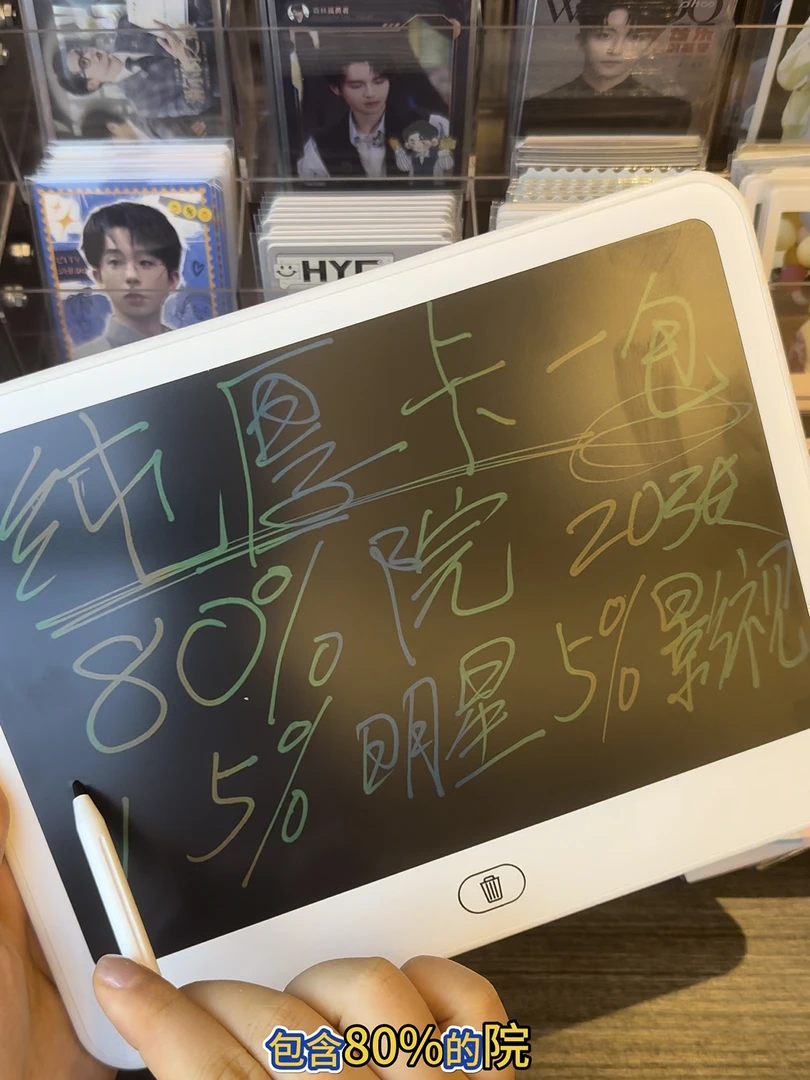 森林孤勇者
HYE
纯厚卡一包
80%院 20张
15%明星 5%影视
包含80%的院